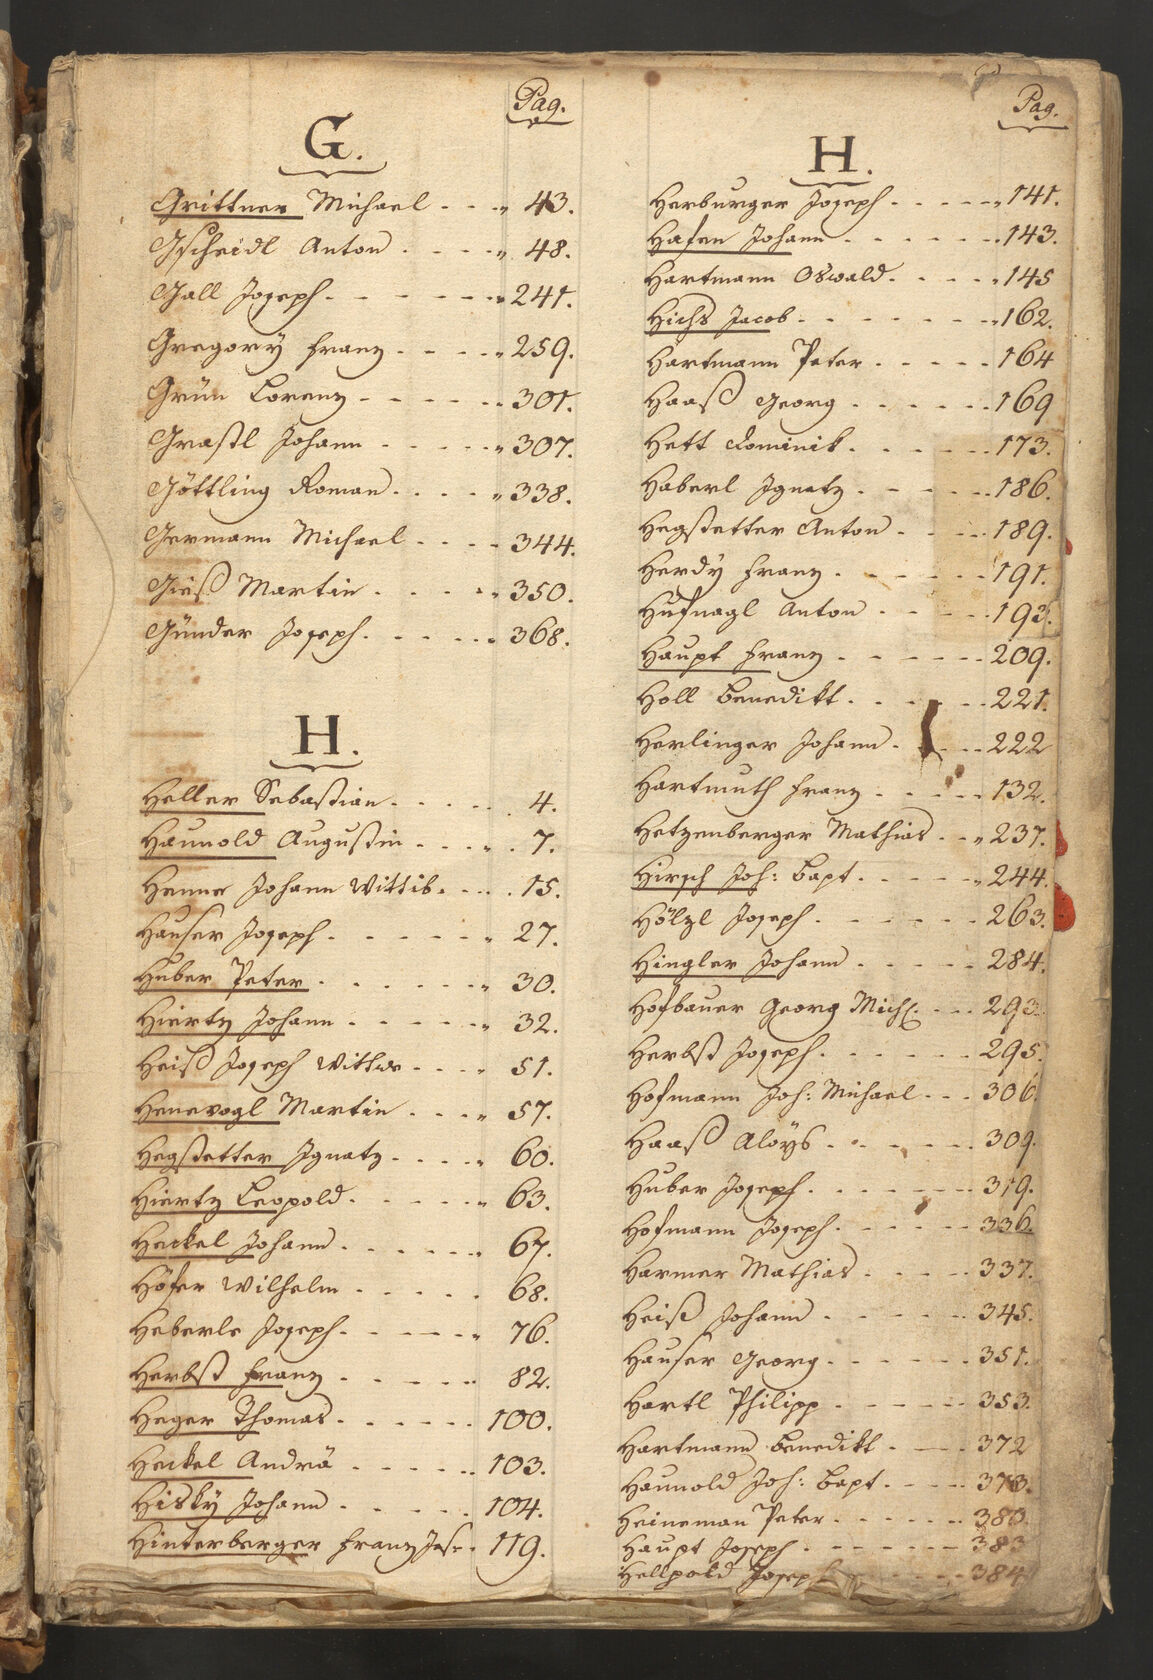 Pag.
G.
Grittner Michael - - - 43.
Gscheidl Anton - - - 48.
Gall Joseph - - - 241.
Gregorÿ Frantz - - - 259.
Grün Lorentz - - - 301.
Grastl Johann - - - 307.
Göttling Roman - - - 338.
Germann Michael - - - 344.
Gieß Martin - - - 350.
Günder Joseph - - - 368.
H.
Heller Sebastian - - - 4.
Haunold Augustin - - - 7.
Henne Johann Wittib - - - 15.
Hauser Joseph - - - 27.
Huber Peter - - - 30.
Hiertz Johann - - - 32.
Heiß Joseph - - - 51.
Henevogl Martin - - - 57.
Hegstetter Ignatz - - - 60.
Hiertz Leopold - - - 63.
Heckel Johann - - - 67.
Höfer Wilhelm - - - 68.
Heberle Joseph - - - 76.
Herbst Frantz - - - 82.
Heger Thomas - - - 100.
Heckel Andrä - - - 103.
Hiskÿ Johann - - - 104.
Hinterberger Frantz Jos: - 119.
Pag.
H.
Herburger Joseph - - - 141.
Hafen Johann - - - 143.
Hartmann Oswald - - - 145
Hichs Jacob - - - 162.
Hartmann Peter - - - 164
Haaß Georg - - - 169
Hett Dominik - - - 173.
Haberl Ignatz - - - 186.
Hegstetter Anton - - - 189.
Herdÿ Frantz - - - 191.
Hufnagl Anton - - - 193.
Haupt Frantz - - - 209.
Holl Benedikt - - - 221.
Herlinger Johann - - - 222
Hartmuth Frantz - - - 132.
Hetzenberger Mathias - - 237.
Hirsch Joh: Bapt. - - - 244.
Hölzl Joseph - - - 263.
Hingler Johann - - - 284.
Hofbauer Georg Mich. - - - 293.
Herbst Joseph - - - 295.
Hofmann Joh: Michael - - - 306.
Haaß Aloÿs - - - 309.
Huber Joseph - - - 319.
Hofmann Joseph - - - 336.
Harmer Mathias - - - 337.
Heiß Johann - - - 345.
Hauser Georg - - - 351.
Hartl Philipp - - - 353.
Hartmann Benedikt - - - 372
Haunold Joh: Bapt. - - -
Heineman Peter - - - 380.
Haupt Joseph - - - 383
Hellpold Joseph - - - 384.